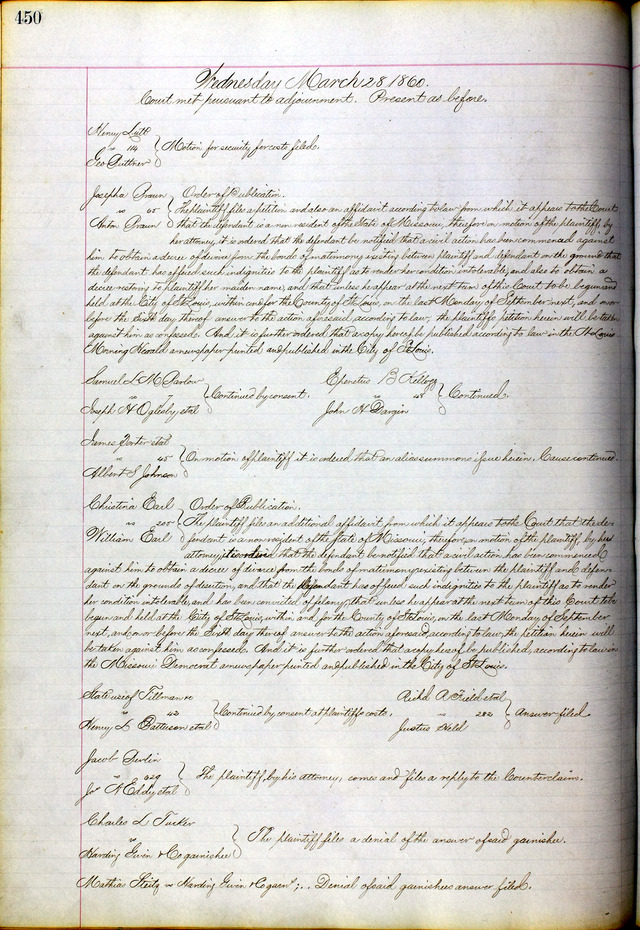 450
Wednesday March 28 1860.
Court met pursuant to adjournment. Present as before.
Henry Lutt
vs 114 Motion for security for costs filed.
Geo Puttner
Josepha Braun Order of Publication.
vs 65 The plaintiff files a petition and also an affidavit according to law from which it appears to the Court
Anton Braun that the defendant is a non resident of the State of Missouri, therefore on motion of the plaintiff, by
her attorney, it is ordered that the defendant be notified that a civil action has been commenced against
him to obtain a decree of divorce from the bonds of matrimony existing between plaintiff and defendant on the ground that
the defendant has offered such indignities to the plaintiff as to render her condition intolerable, and also to obtain a
decree restoring to plaintiff her maiden name, and that unless he appear at the next term of this Court to be begun and
held at the City of St Louis, within and for the County of St Louis, on the last Monday of September next, and on or
before the sixth day thereof answer to the action aforesaid, according to law, the plaintiffs petition herein will be taken
against him as confessed. And it is further ordered that a copy hereof be published according to law in the St Louis
Morning Herald a newspaper printed and published in the City of St Louis.
Samuel L M Barlow
vs 7 Continued by consent.
Joseph H Oglesby et al
B Kellogg
vs 48 Continued.
John H Dargin
James Porter et al
vs 45 On motion of plaintiff it is ordered that an alias summons issue herein. Cause continued.
Albert S Johnson
Christina Earl Order of Publication.
vs 205 The plaintiff files an additional affidavit from which it appears to the Court that the de-
William Earl fendant is a non resident of the State of Missouri, therefore on motion of the plaintiff, by her
attorney, it is ordered that the defendant be notified that a civil action has been commenced
against him to obtain a decree of divorce from the bonds of matrimony existing between the plaintiff and defen-
dant on the grounds of desertion, and that the defendant has offered such indignities to the plaintiff as to render
her condition intolerable, and has been convicted of felony, that unless he appear at the next term of this Court to be
begun and held at the City of St Louis, within and for the County of St Louis, on the last Monday of September
next, and on or before the Sixth day thereof answer to the action aforesaid, according to law, the petition herein will
be taken against him as confessed. And it is further ordered that a copy hereof be published, according to law in
the Missouri Democrat a newspaper printed and published in the City of St Louis.
State use of Tillman
vs 42 Continued by consent at plaintiffs costs.
Henry L Patterson et al
Richd A Field et al
vs 282 Answer filed.
Justus Held
Jacob
vs 429 The plaintiff, by his attorney, comes and files a reply to the Counterclaim.
Jno N Eddy et al
Charles L Tucker
vs The plaintiff files a denial of the answer of said garnishee.
Harding Given & Co garnishee
Mathias Steitz vs Harding Given & Co garn; ... Denial of said garnishees answer filed.